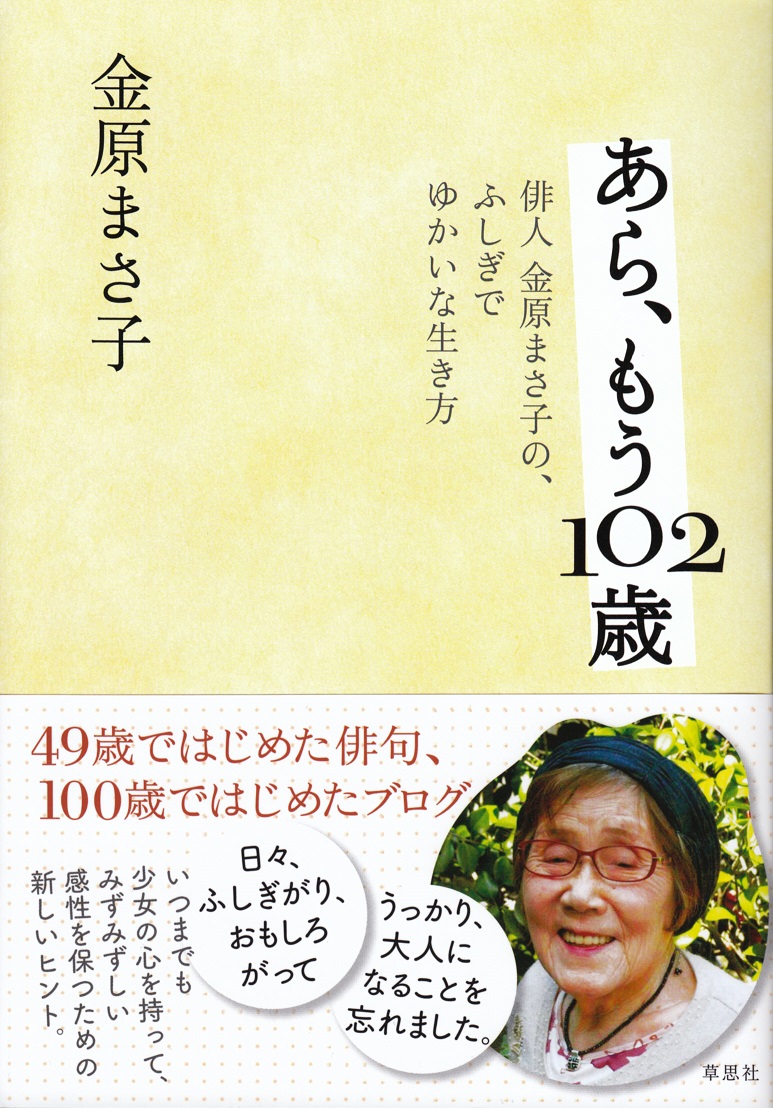 あら、もう102歳
俳人 金原まさ子の、
ふしぎで
ゆかいな生き方
金原まさ子
49歳ではじめた俳句、
100歳ではじめたブログ
日々、
ふしぎがり、
おもしろ
がって
うっかり、
大人に
なることを
忘れました。
いつまでも
少女の心を持って、
みずみずしい
感性を保つための
新しいヒント。
草思社